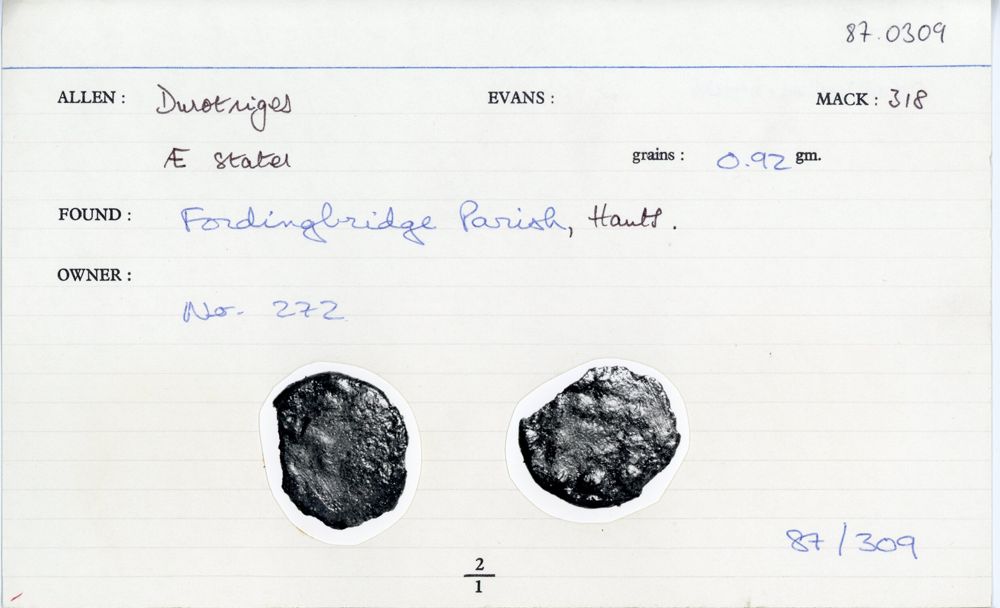 87.0309
ALLEN : Durotriges EVANS : MACK : 318
Æ stater grains : 0.92 gm.
FOUND : Fordingbridge Parish, Hants.
OWNER :
No. 272
87/309
2
1